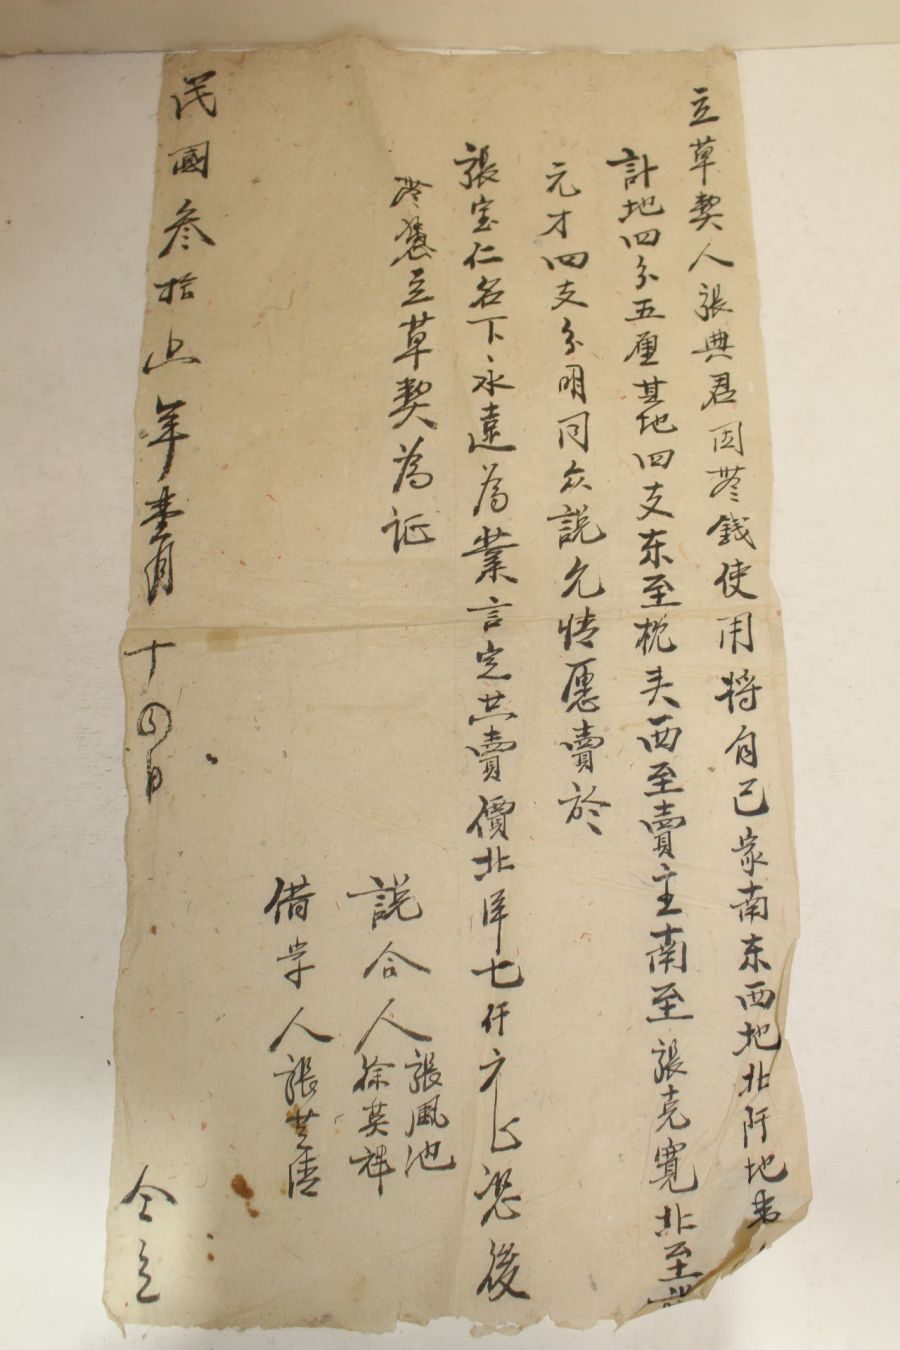 立草契人張典君因無錢使用将自己家南东西地北阡地
計地四分五厘其地四支东至枕头西至賣主南至張克寬北至
元才四支分明同众說允情愿賣於
張宝仁名下永遠為業言定共賣價北洋七仟元正恐後
無憑立草契為证
說合人張風池徐英祥
借字人張
民國叁拾年壹月十四日 仝立